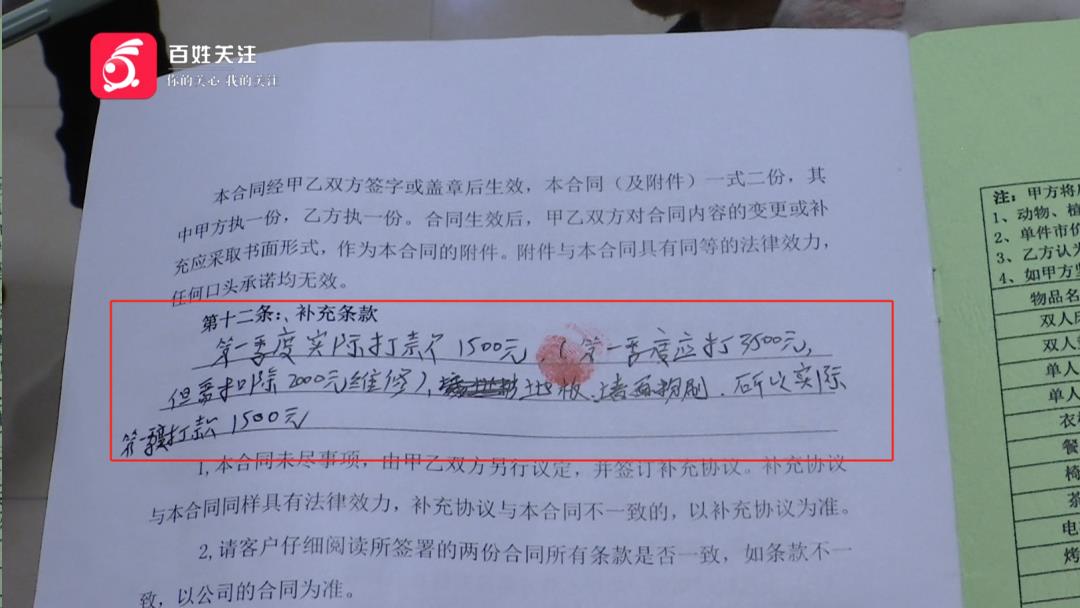 百姓关注
你的关心 我的关注
本合同经甲乙双方签字或盖章后生效，本合同（及附件）一式二份，其
中甲方执一份，乙方执一份。合同生效后，甲乙双方对合同内容的变更或补
充应采取书面形式，作为本合同的附件。附件与本合同具有同等的法律效力，
任何口头承诺均无效。
第十二条：、补充条款
第一季度实际打款 1500元，（第一季度应打3500元，
但需扣除2000元维修），地板、墙面粉刷．所以实际
第一季打款1500元
1,本合同未尽事项，由甲乙双方另行议定，并签订补充协议。补充协议
与本合同同样具有法律效力，补充协议与本合同不一致的，以补充协议为准。
2,请客户仔细阅读所签署的两份合同所有条款是否一致，如条款不一
致，以公司的合同为准。
注：甲方将
1、动物、植
2、单件市价
3、乙方认为
4、如甲方
物品名
双人
双人
单人
单人
衣
餐
椅
茶
电
烤